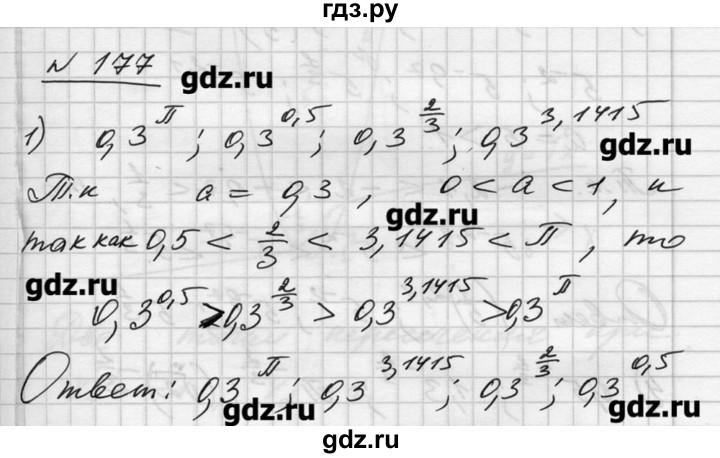 гдз.ру
№ 177
gdz.ru
1) 0,3^π ; 0,3^0,5 ; 0,3^(2/3) ; 0,3^3,1415
gdz.ru
Т.к а = 0,3 , 0 < а < 1, и
gdz.ru
так как 0,5 < 2/3 < 3,1415 < π , то
gdz.ru
0,3^0,5 > 0,3^(2/3) > 0,3^3,1415 > 0,3^π
Ответ: 0,3^π ; 0,3^3,1415 ; 0,3^(2/3) ; 0,3^0,5
gdz.ru gdz.ru
gdz.ru